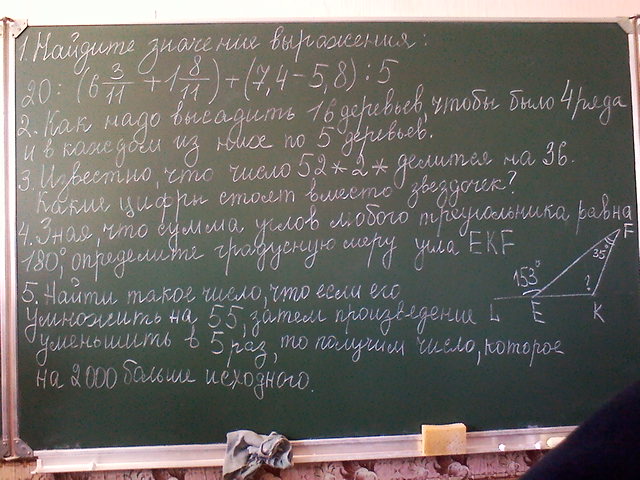 1. Найдите значение выражения:
20 : (6 3/11 + 1 8/11) + (7,4 - 5,8) : 5
2. Как надо высадить 16 деревьев, чтобы было 4 ряда
и в каждом из них по 5 деревьев.
3. Известно, что число 52*2* делится на 36.
Какие цифры стоят вместо звездочек?
4. Зная, что сумма углов любого треугольника равна
180°, определите градусную меру угла EKF
F
35°
153°
?
L E K
5. Найти такое число, что если его
умножить на 55, затем произведение
уменьшить в 5 раз, то получим число, которое
на 2000 больше исходного.